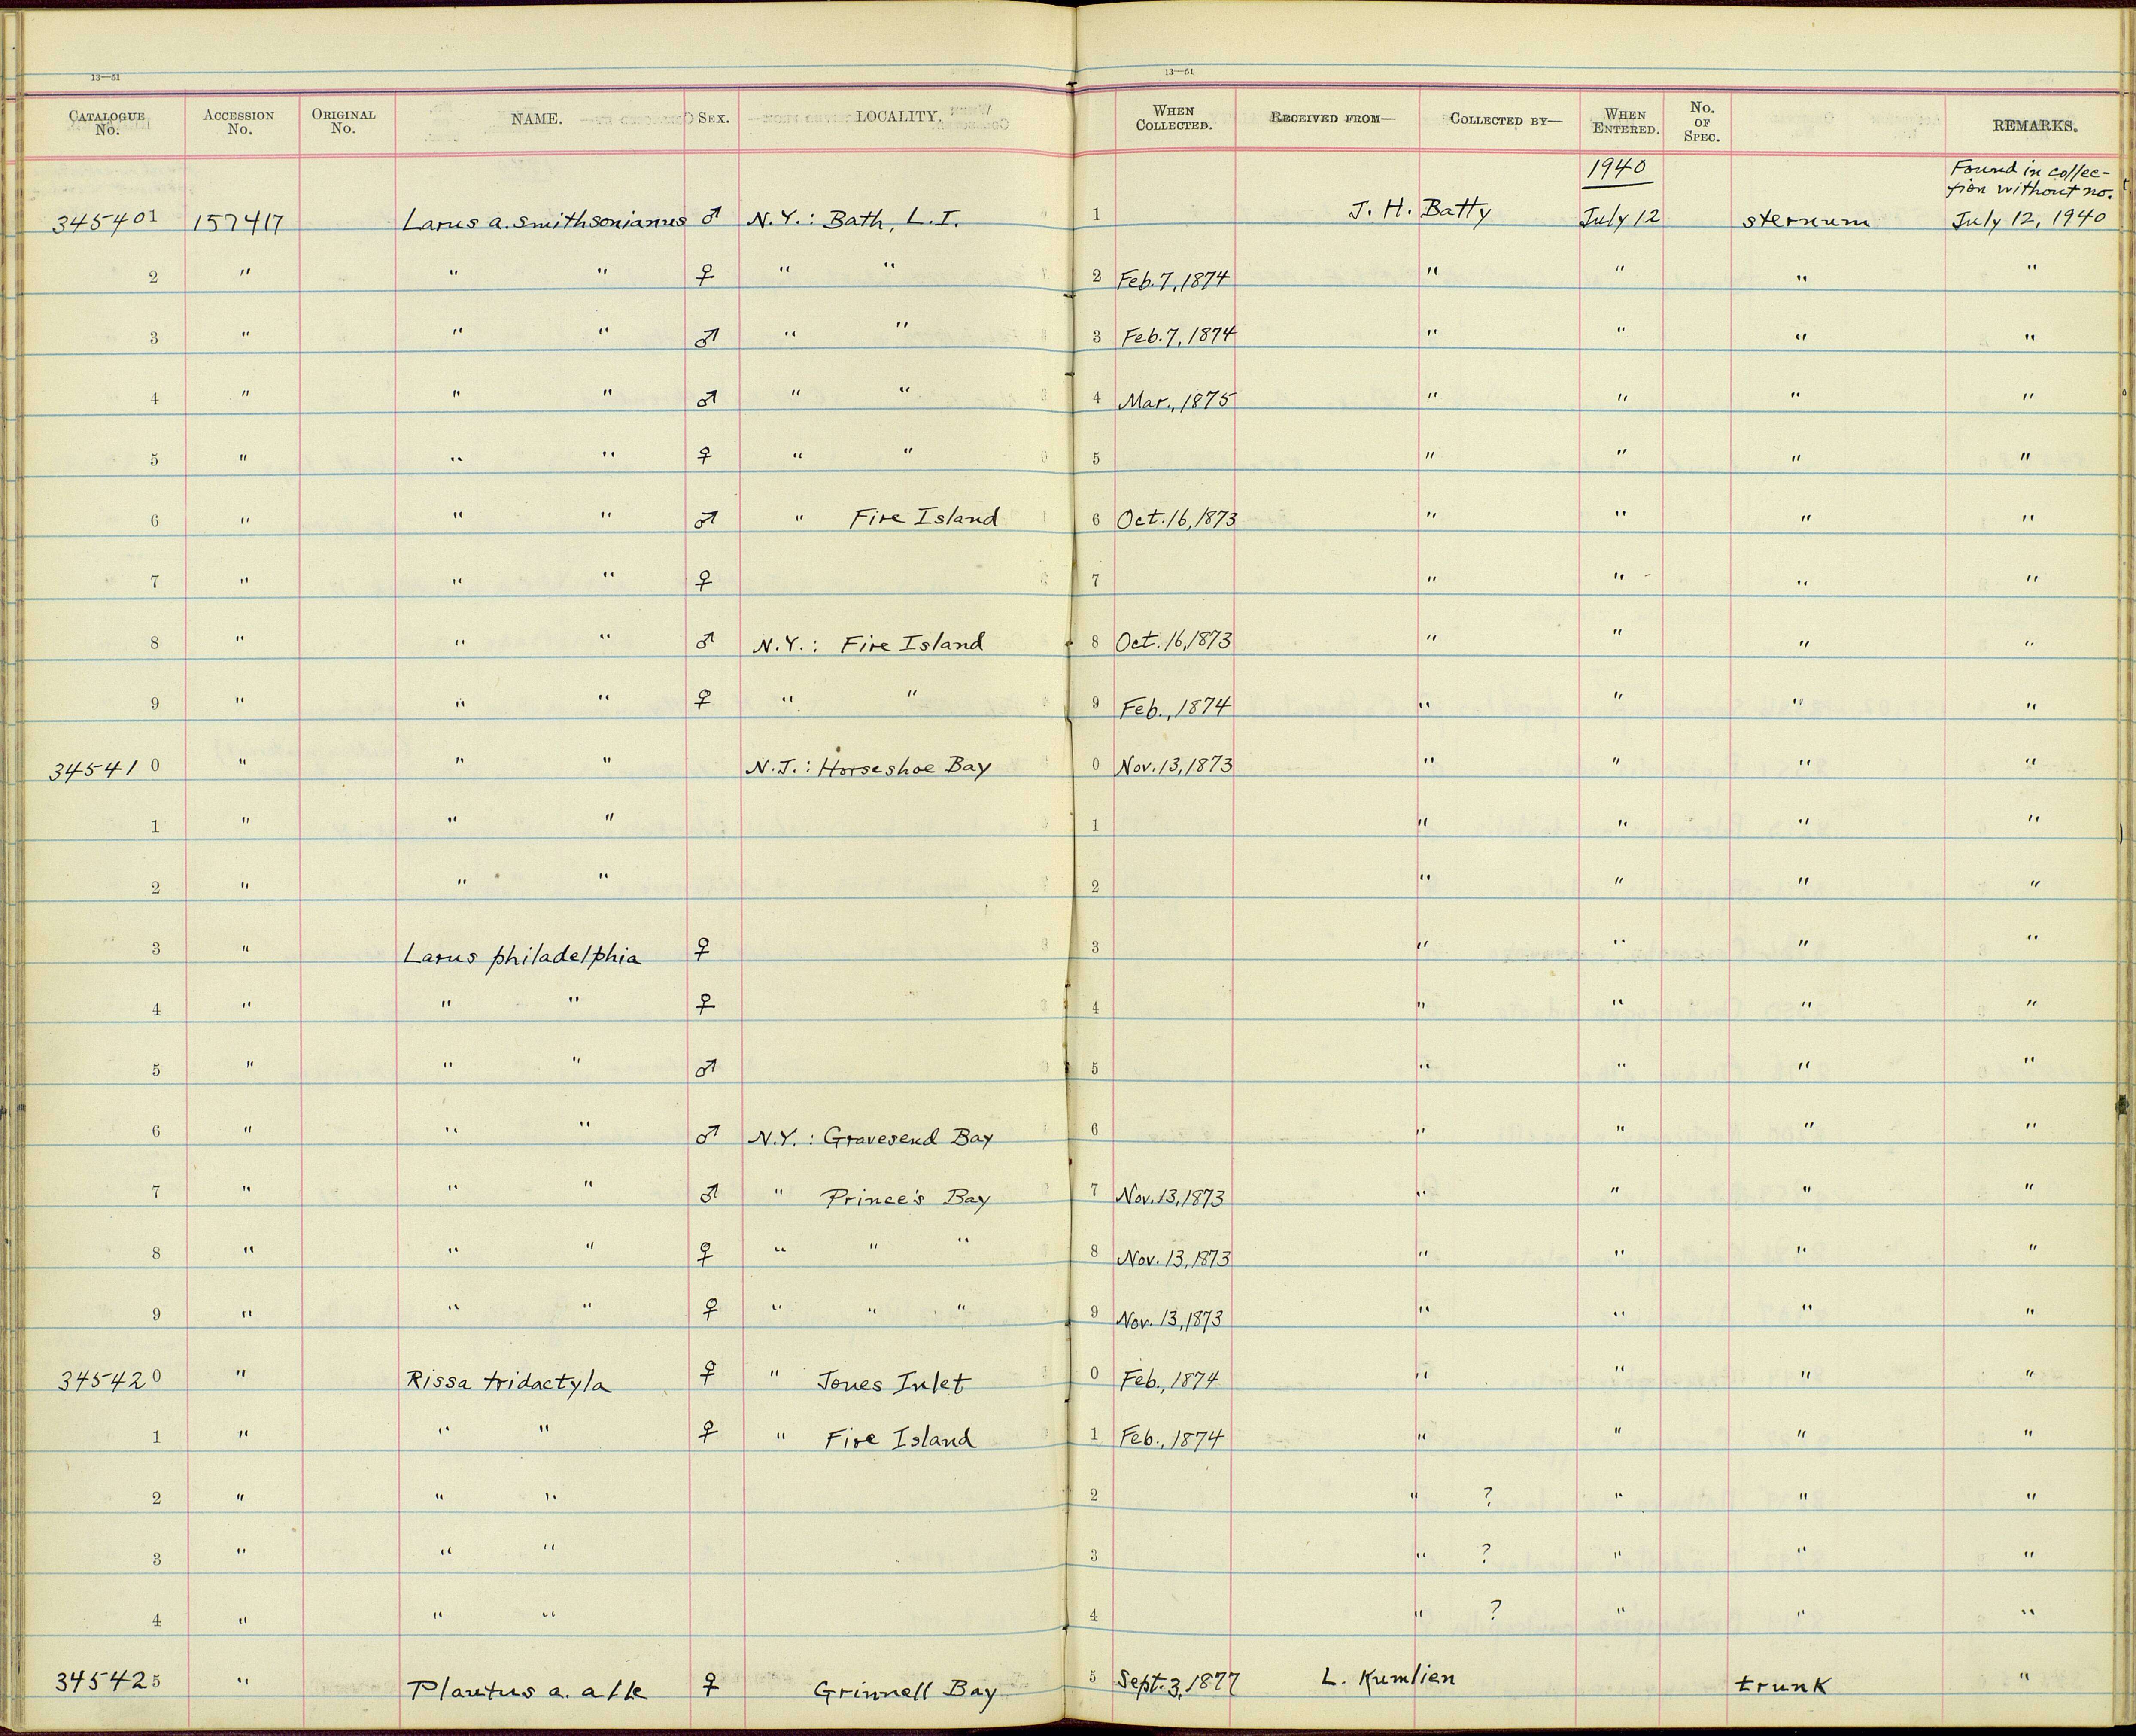 13—51 13—51
CATALOGUE No. ACCESSION No. ORIGINAL No. NAME. SEX. LOCALITY. WHEN COLLECTED. RECEIVED FROM— COLLECTED BY— WHEN ENTERED. No. OF SPEC. REMARKS.
1940 Found in collec-
tion without no.
345401 157417 Larus a. smithsonianus ♂ N.Y.: Bath, L.I. 1 J. H. Batty July 12 sternum July 12, 1940
2 " " " ♀ " " 2 Feb. 7, 1874 " " " "
3 " " " ♂ " " 3 Feb. 7, 1874 " " " "
4 " " " ♂ " " 4 Mar., 1875 " " " "
5 " " " ♀ " " 5 " " " "
6 " " " ♂ " Fire Island 6 Oct. 16, 1873 " " " "
7 " " " ♀ 7 " " " "
8 " " " ♂ N.Y.: Fire Island 8 Oct. 16, 1873 " " " "
9 " " " ♀ " " 9 Feb., 1874 " " " "
345410 " " " N.J.: Horseshoe Bay 0 Nov. 13, 1873 " " " "
1 " " " 1 " " " "
2 " " " 2 " " " "
3 " Larus philadelphia ♀ 3 " " " "
4 " " " ♀ 4 " " " "
5 " " " ♂ 5 " " " "
6 " " " ♂ N.Y.: Gravesend Bay 6 " " " "
7 " " " ♂ " Prince's Bay 7 Nov. 13, 1873 " " " "
8 " " " ♀ " " " 8 Nov. 13, 1873 " " " "
9 " " " ♀ " " " 9 Nov. 13, 1873 " " " "
345420 " Rissa tridactyla ♀ " Jones Inlet 0 Feb., 1874 " " " "
1 " " " ♀ " Fire Island 1 Feb., 1874 " " " "
2 " " " 2 " ? " " "
3 " " " 3 " ? " " "
4 " " " 4 " ? " " "
345425 " Plautus a. alle ♀ Grinnell Bay 5 Sept. 3, 1877 L. Kumlien trunk "